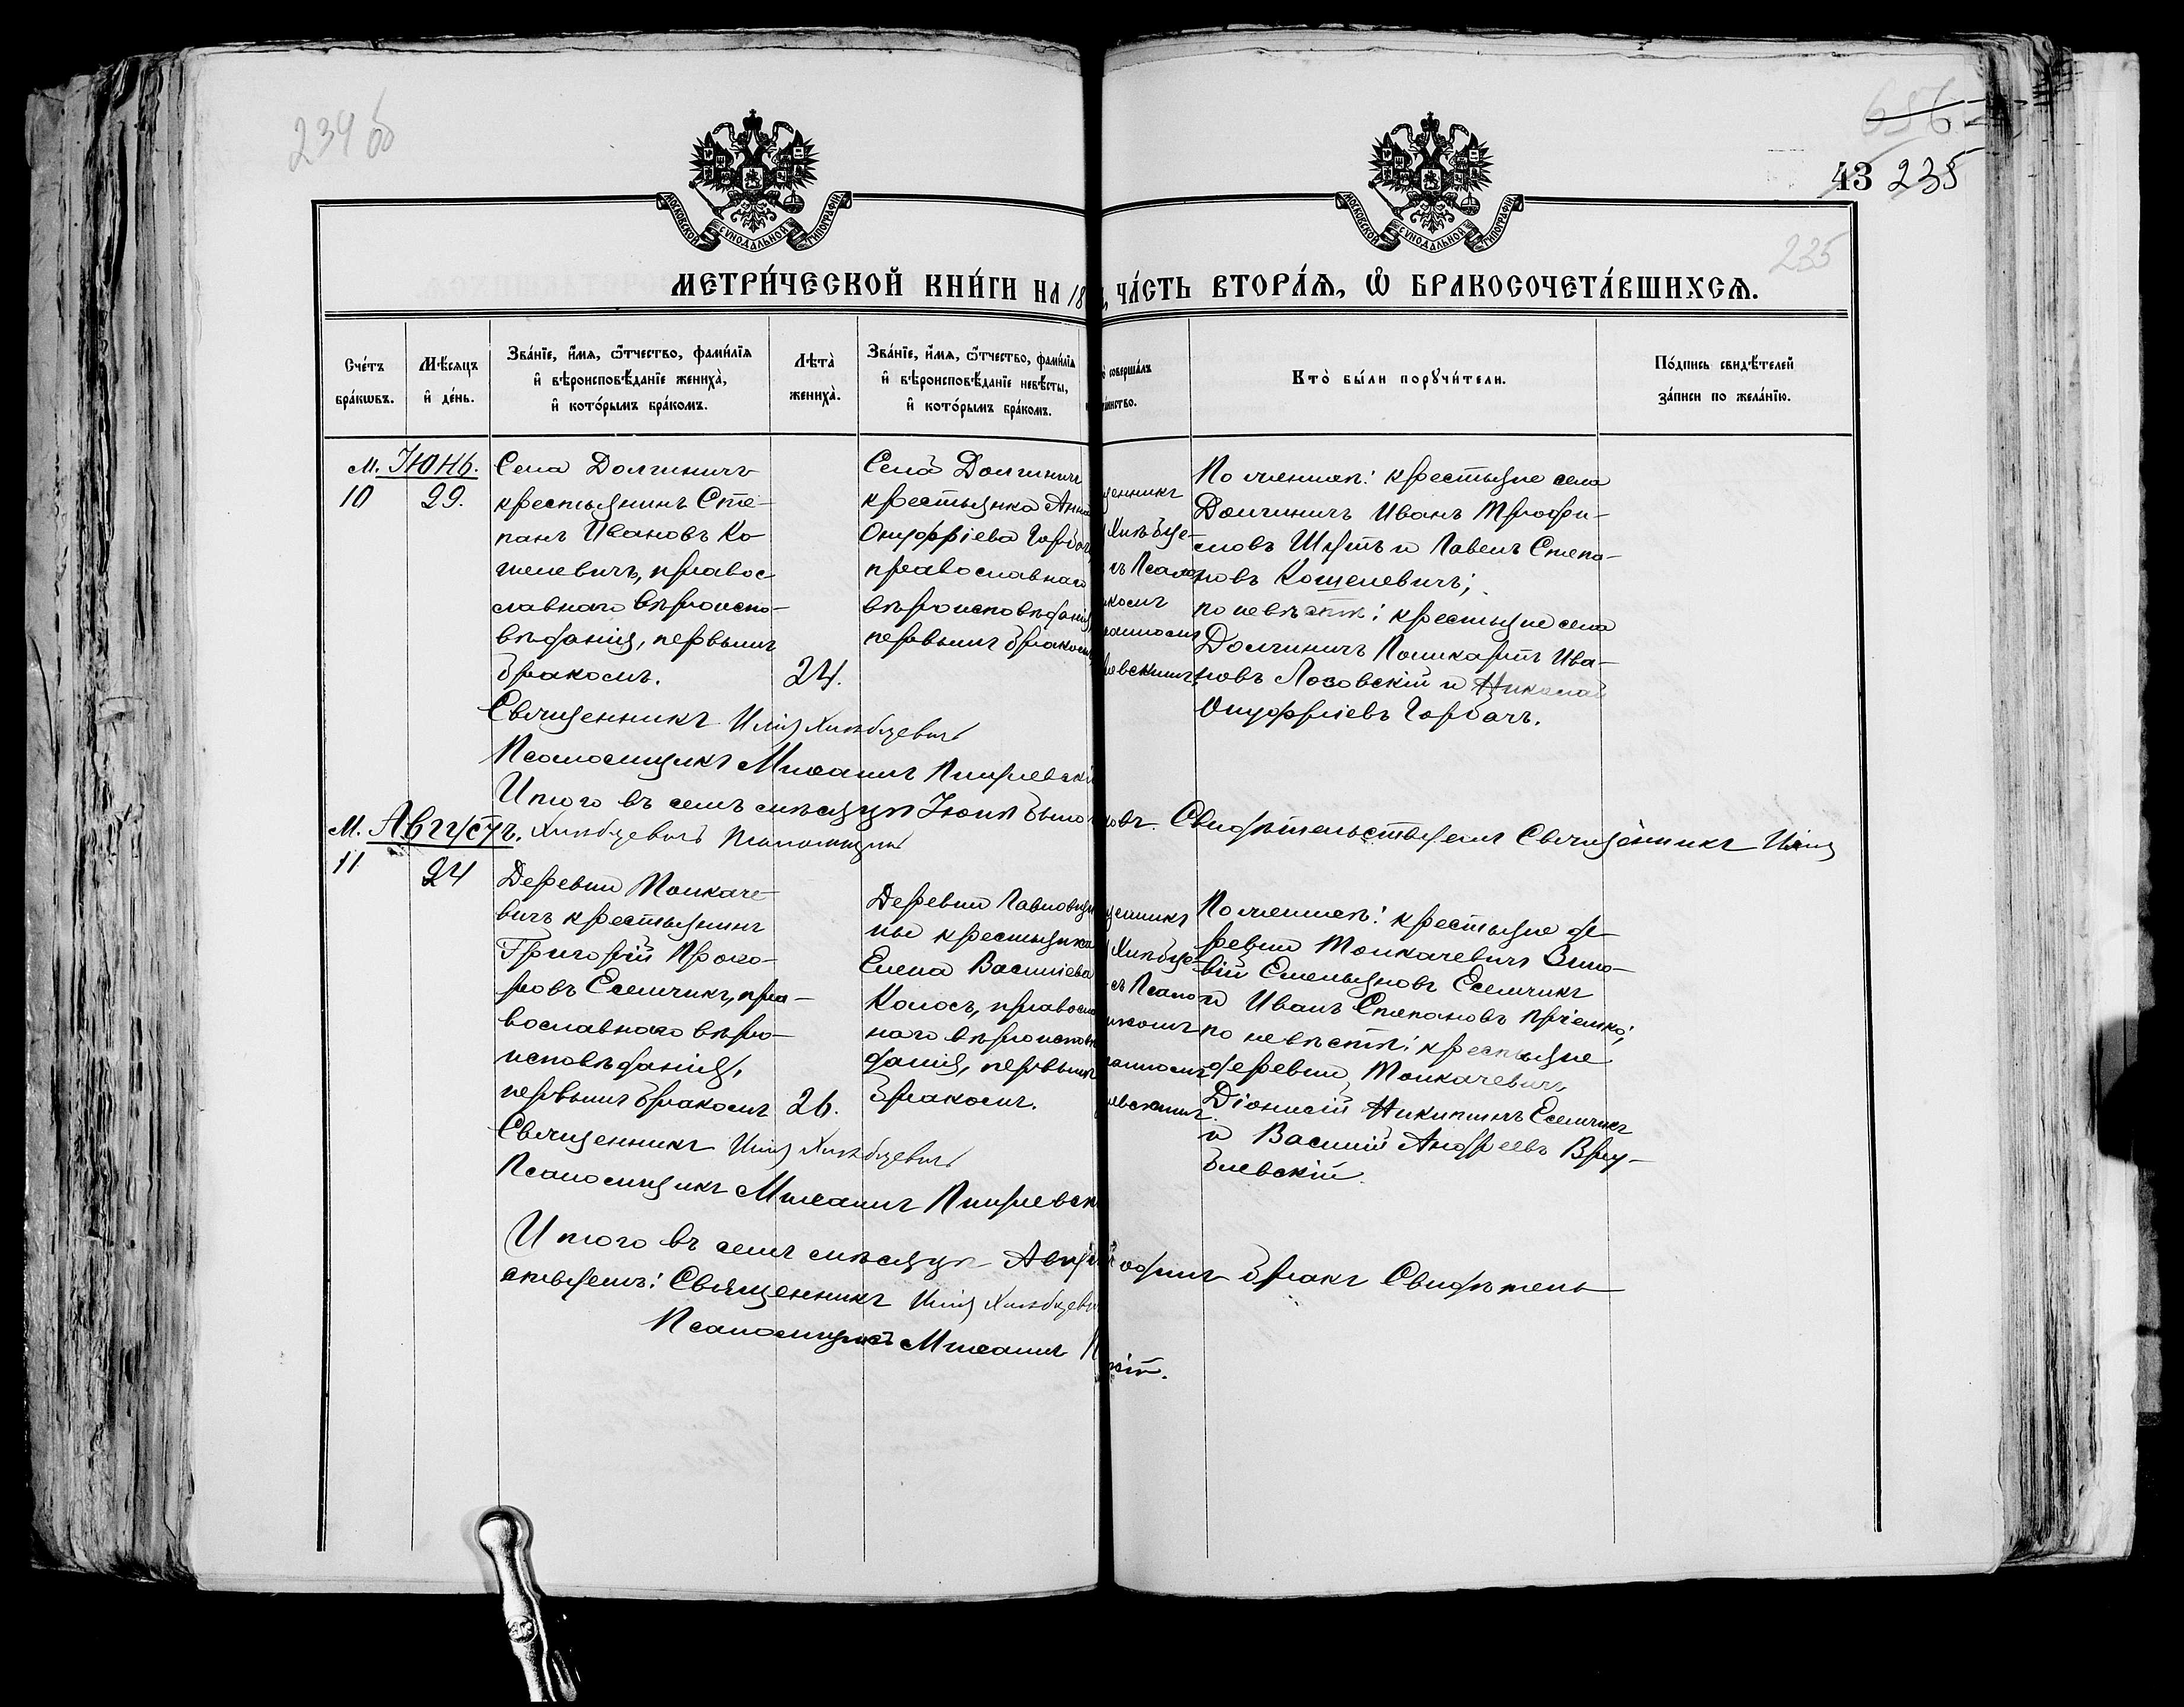 234 об
656
43 235
235
МОСКОВСКОЙ СѴНОДАЛЬНОЙ ТИПОГРАФІИ
МОСКОВСКОЙ СѴНОДАЛЬНОЙ ТИПОГРАФІИ
МЕТРИ́ЧЕСКОЙ КНИ́ГИ НА 18
ЧА́СТЬ ВТОРА́Ѧ, Ѿ БРАКОСОЧЕТА́ВШИХСѦ.
Сче́тъ бра́кѡвъ.
Мѣ́сяцъ и҆ де́нь.
Зва́нїе, и҆́мѧ, ѻ҆́тчество, фами́лїѧ
и҆ вѣроисповѣ́данїе жениха̀,
и҆ кото́рымъ бра́комъ.
Лѣта̀
жениха̀.
Зва́нїе, и҆́мѧ, ѻ҆́тчество, фами́лїѧ
и҆ вѣроисповѣ́данїе невѣ́сты,
и҆ кото́рымъ бра́комъ.
совершáлъ
Кто̀ бы́ли порꙋчи́тели.
По́дпись свидѣ́телей
за́писи по жела́нїю.
М. Іюнь.
10
29.
Села Долгиничъ
крестьянинъ Сте-
панъ Ивановъ Ко
шелевичъ, правос
славнаго вѣроиспо-
вѣданія, первымъ
бракомъ.
24.
Села Долгиничъ
крестьянка Анна
Онуфріева Горбачъ
православнаго
вѣроисповѣданія,
первымъ бракомъ
щенникъ
Хлѣбце-
ъ Псалом
икомъ
хаиломъ
левскимъ.
По женихѣ: крестьяне села
Долгиничъ Иванъ Трофи-
мовъ Шутъ и Павелъ Степа-
новъ Кошелевичъ;
по невѣстѣ: крестьяне села
Долгиничъ Поликарпъ Ива-
новъ Лозовскій и Николай
Онуфріевъ Горбачъ.
Священникъ Илія Хлѣбцевичъ
Псаломщикъ Михаилъ
Итого въ семъ мѣсяцѣ Іюнѣ было
ковъ. Свидѣтельствуемъ Священникъ Илія
Хлѣбцевичъ Псаломщикъ
М. Августъ.
11
24
Деревни Толкаче-
вичъ крестьянинъ
Григорій Прохо-
ровъ Есемчикъ, пра-
вославнаго вѣро-
исповѣданія,
первымъ бракомъ
26.
Деревни Павловщи
ны крестьянка
Елена Василіева
Колосъ, правосла
наго вѣроисповѣ
данія, первымъ
бракомъ.
щенникъ
Хлѣбце-
съ Псалом
икомъ
хаиломъ
левскимъ.
По женихѣ: крестьяне де
ревни Толкачевичъ Зино-
вій Емельяновъ Есемчикъ
и Иванъ Степановъ Пріемко;
по невѣстѣ: крестьяне
деревни Толкачевичъ
Діонисій Никитинъ Есемчикъ
и Василій Андреевъ Вру-
блевскій.
Священникъ Илія Хлѣбцевичъ
Псаломщикъ Михаилъ
Итого въ семъ мѣсяцѣ Августѣ одинъ бракъ Свидѣтель
ствуемъ: Священникъ Илія Хлѣбцевичъ
Псаломщикъ Михаилъ
скій.